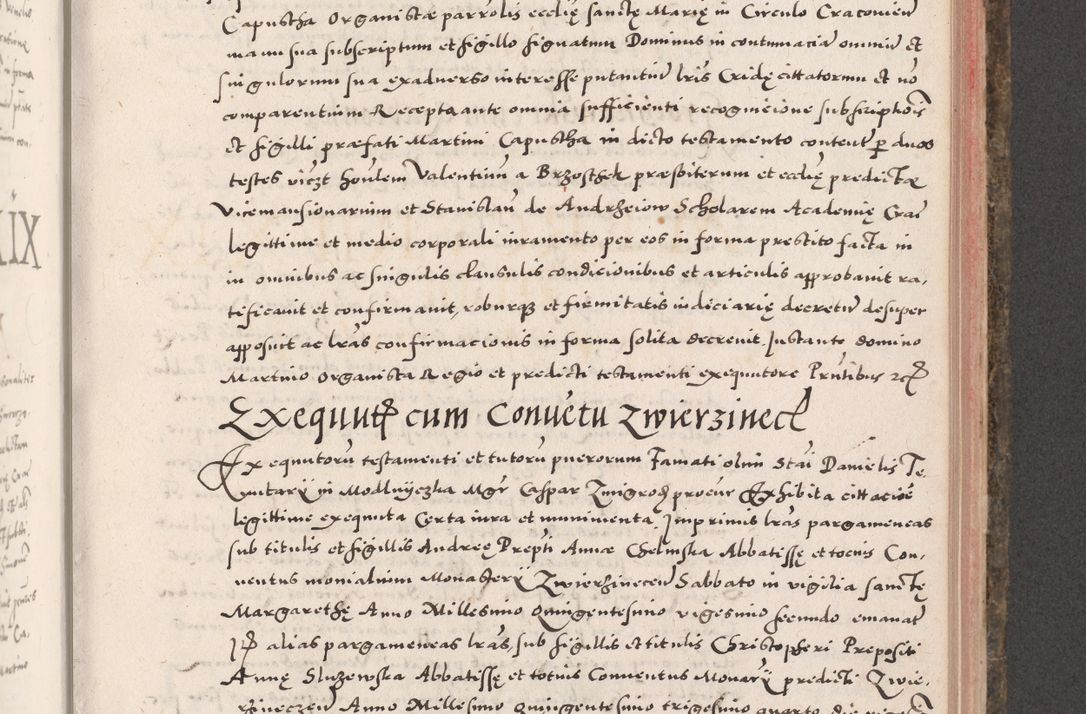 Capustha Organistæ parrolis eccliȩ sanctȩ Mariȩ in Circulo Cracovien
manu sua subscriptum et sigillo signatum Dominus in contumaciā omniū et
singulorum sua exadverso interesse putantiū lris Cridȩ cittatorum et nō
comparentium Recepta ante omnia sufficienti recognicione subscriptiōis
et sigilli præfati Martini Capustha in dicto testamento content̄ p duos
testes viczt honlem Valentinū a Brzosthek præsbiterum et eccliȩ predictæ
Vicemansionarium et Stanislaū de Andrzeiow Scholarem Academiȩ Crac̄
legittime et medio corporali iuramento per eos in forma prestito facta in
in omnibus ac singulis clausulis condicionibus et articulis approbavit ra,
tificavit et confirmavit, roburqȝ et firmitatis iudiciariȩ decretū desuper
apposuit ac lrās confirmacionis in forma solita decrevit. Instante domino
Martino Organista Regio et predicti testamenti exequutore Pntibus ꝛc̄
Exequut cum Convētu Zwierzinecl
Exequutorū testamenti et tutorū puerorum Famati olim Stāi Danielis Te
nutarÿ in Modlnyczka Mgr Caspar Zmigrod procur Exhibita cittaciōe
legittime exequuta Certa iura et munimenta. Imprimis lrās pargameneas
sub titulis et sigillis Andreȩ Prepti Annæ Chelmska Abbatissȩ et tocius Con,
ventus monialium Monasterÿ Zwierzinecen̄ Sabbato in vigilia sanctȩ
Margarethȩ Anno Millesimo Quingentesimo vigesimo secundo emanat̄
It̄ alias pargameneas lrās, sub sigillis et titulis Christopheri Prepositi
Annȩ Sluzewska Abbatissȩ et totius Conventus Monarÿ predicti Zwie,
rzineczen̄ Anno Millesimo quingentesimo trigesimo quarto die